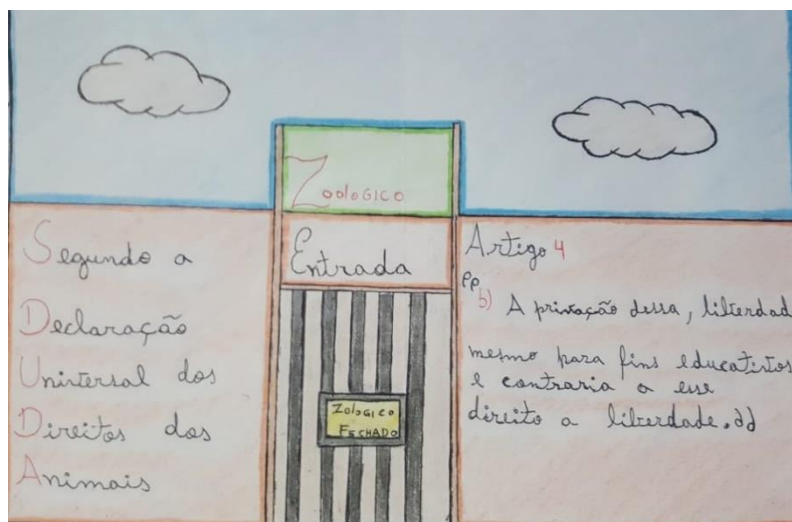 Zoologico
Entrada
Zologico
Fechado
Segundo a
Declaração
Universal dos
Direitos dos
Animais
Artigo 4
b) A privação dessa, liberdad
mesmo para fins educativos
e contraria a esse
direito a liberdade.